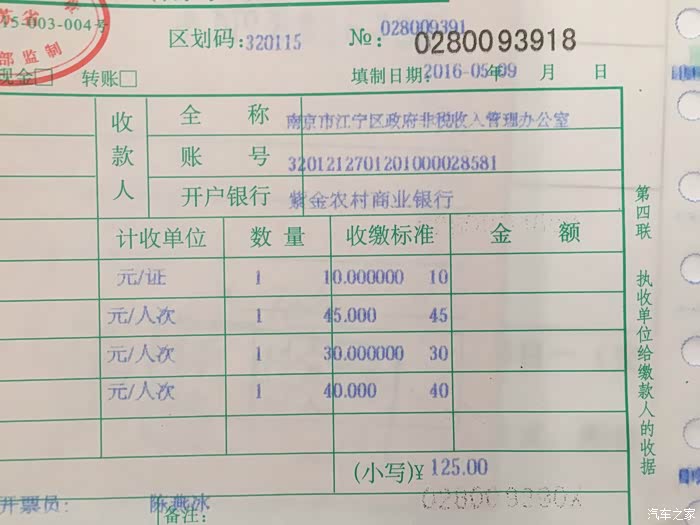 苏省
15-003-004号
部监制
区划码: 320115
№: 028009391
0280093918
现金□ 转账□
填制日期: 2016-05-09 年 月 日
收款人
全 称 南京市江宁区政府非税收入管理办公室
账 号 3201212701201000028581
开户银行 紫金农村商业银行
计收单位 数 量 收缴标准 金 额
元/证 1 10.000000 10
元/人次 1 45.000 45
元/人次 1 30.000000 30
元/人次 1 40.000 40
(小写)¥ 125.00
开票员: 陈燕冰
备注:
第四联 执收单位给缴款人的收据
汽车之家